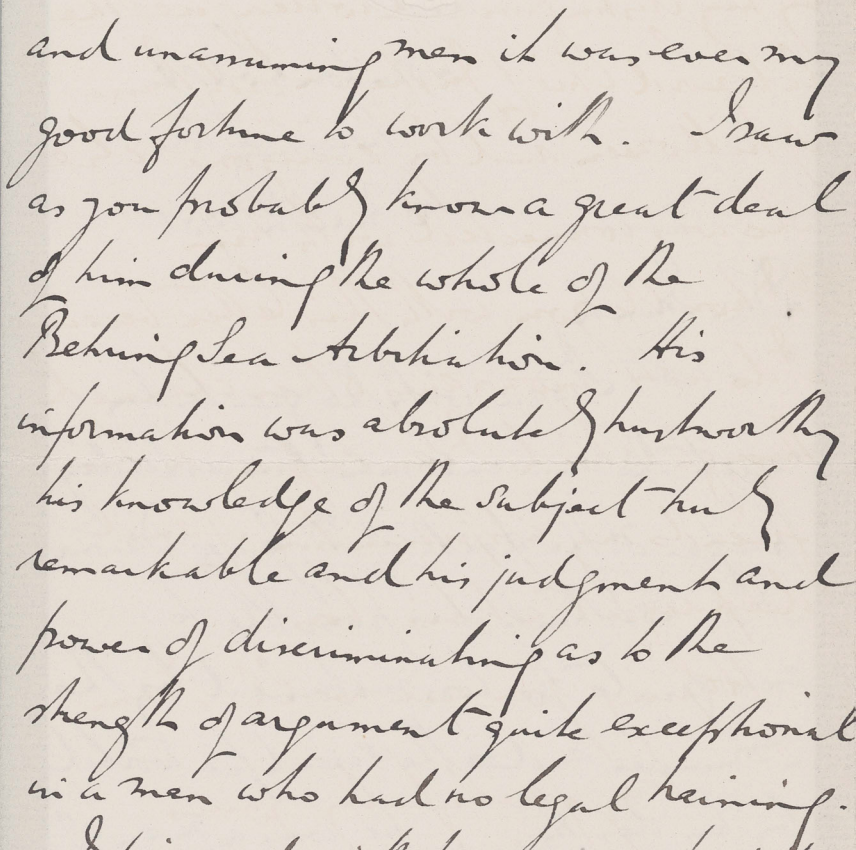 and unassuming men it was ever my
good fortune to work with. I saw
as you probably know a great deal
of him during the whole of the
Behring Sea Arbitration. His
information was absolutely trustworthy
his knowledge of the subject truly
remarkable and his judgment and
power of discriminating as to the
strength of argument quite exceptional
in a man who had no legal training.